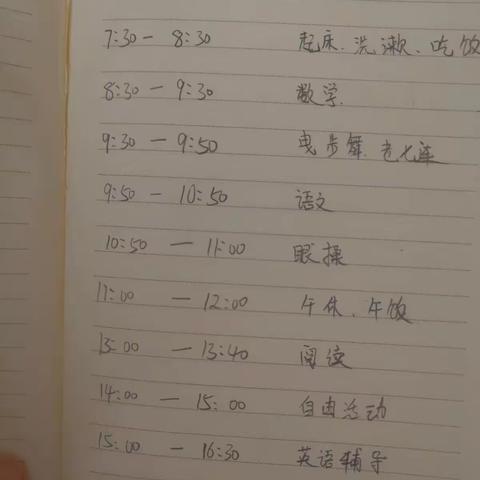 7:30 — 8:30 起床、洗漱、吃饭
8:30 — 9:30 数学
9:30 — 9:50 曳步舞、老七连
9:50 — 10:50 语文
10:50 — 11:00 眼操
11:00 — 12:00 午休、午饭
13:00 — 13:40 阅读
14:00 — 15:00 自由活动
15:00 — 16:30 英语辅导